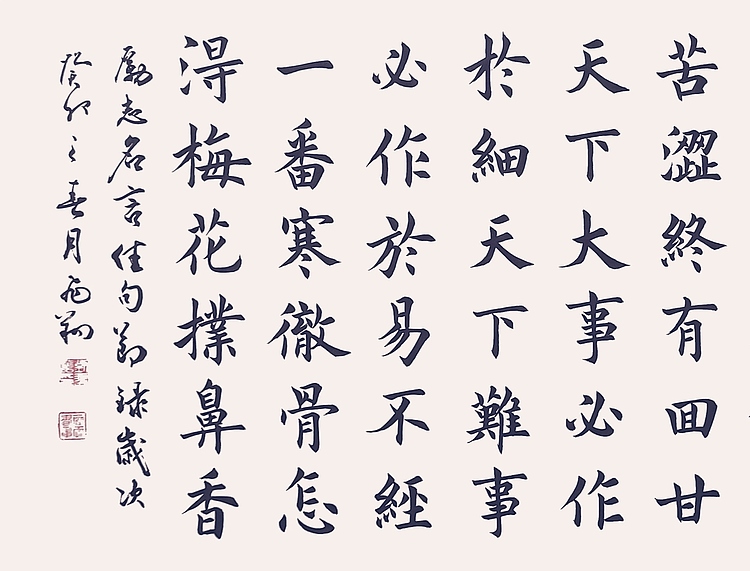 苦澀終有回甘
天下大事必作
於細天下難事
必作於易不經
一番寒徹骨怎
淂梅花撲鼻香
勵志名言佳句節錄歲次
癸卯之春月